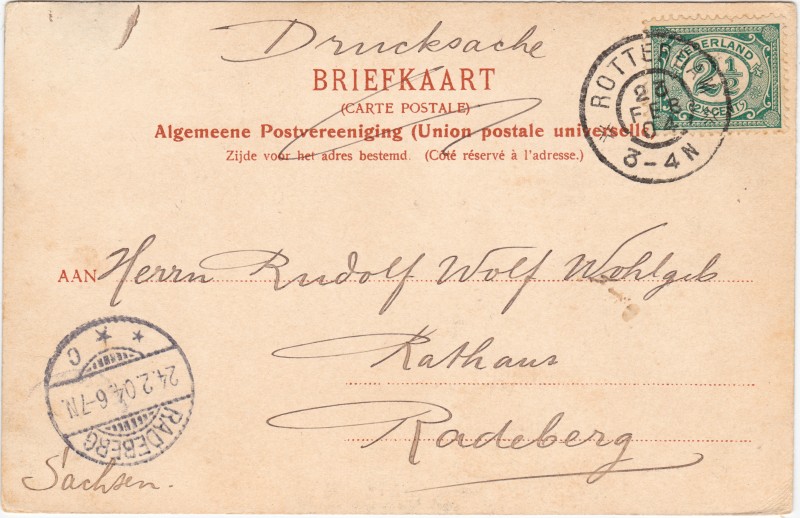 Drucksache
BRIEFKAART
(CARTE POSTALE)
Algemeene Postvereeniging (Union postale universelle)
Zijde voor het adres bestemd. (Côté réservé à l'adresse.)
NEDERLAND
2½
(2½ CENT)
ROTTERDAM
FEB
04
3-4N
AAN Herrn Rudolf Wolf Wohlgeb
Rathaus
Radeberg
Sachsen.
C
24.2.04.6-7N.
RADEBERG